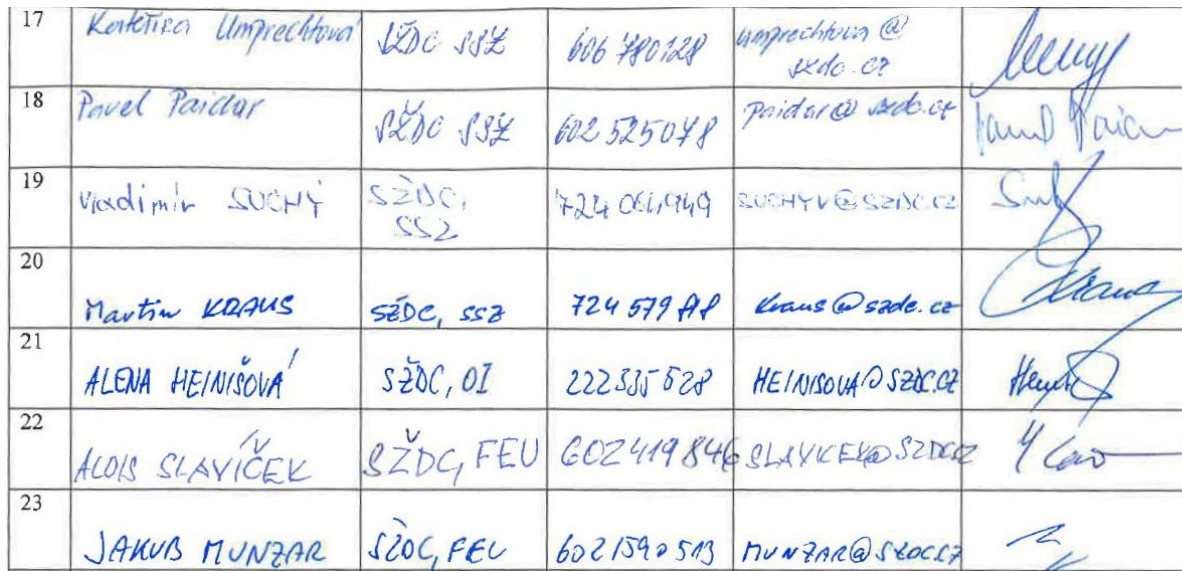 17 Kateřina Umprechtová SŽDC SSZ 606 780128 umprechtova@
szdc.cz
18 Pavel Paidar SŽDC SSZ 602 525078 paidar@szdc.cz
19 Vladimír SUCHÝ SŽDC, 724 064949 SUCHYV@SZDC.CZ
SSZ
20
Martin KRAUS SŽDC, SSZ 724 579 kraus@szdc.cz
21
ALENA HEINIŠOVÁ SŽDC, OI 222335528 HEINISOVA@SZDC.CZ
22
ALOIS SLAVÍČEK SŽDC, FEU 602419846 SLAVICEK@SZDC.CZ
23
JAKUB MUNZAR SŽDC, FEU 602 590 513 MUNZAR@SZDC.CZ